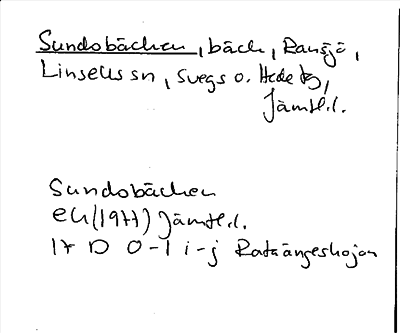 Sundobäcken, bäck, Ransjö,
Linsells sn, Svegs o. Hede tg,
Jämtl.l.
Sundobäcken
ek (1977) Jämtl.l.
17 D 0-1 i-j Rataängeskojan